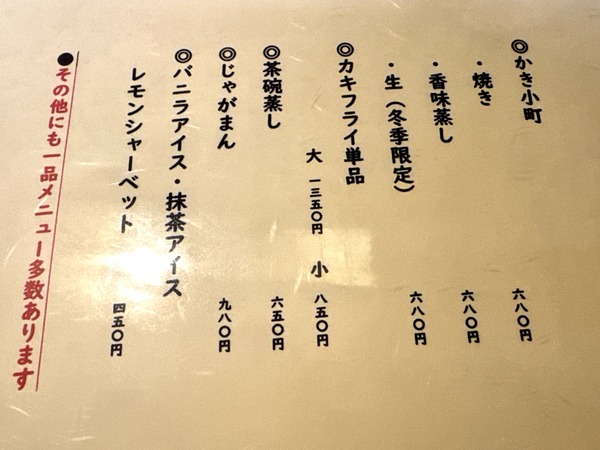 ◎かき小町
・焼き 六八〇円
・香味蒸し 六八〇円
・生（冬季限定） 六八〇円
◎カキフライ単品
大 一三五〇円 小 八五〇円
◎茶碗蒸し 六五〇円
◎じゃがまん 九八〇円
◎バニラアイス・抹茶アイス
レモンシャーベット 四五〇円
●その他にも一品メニュー多数あります